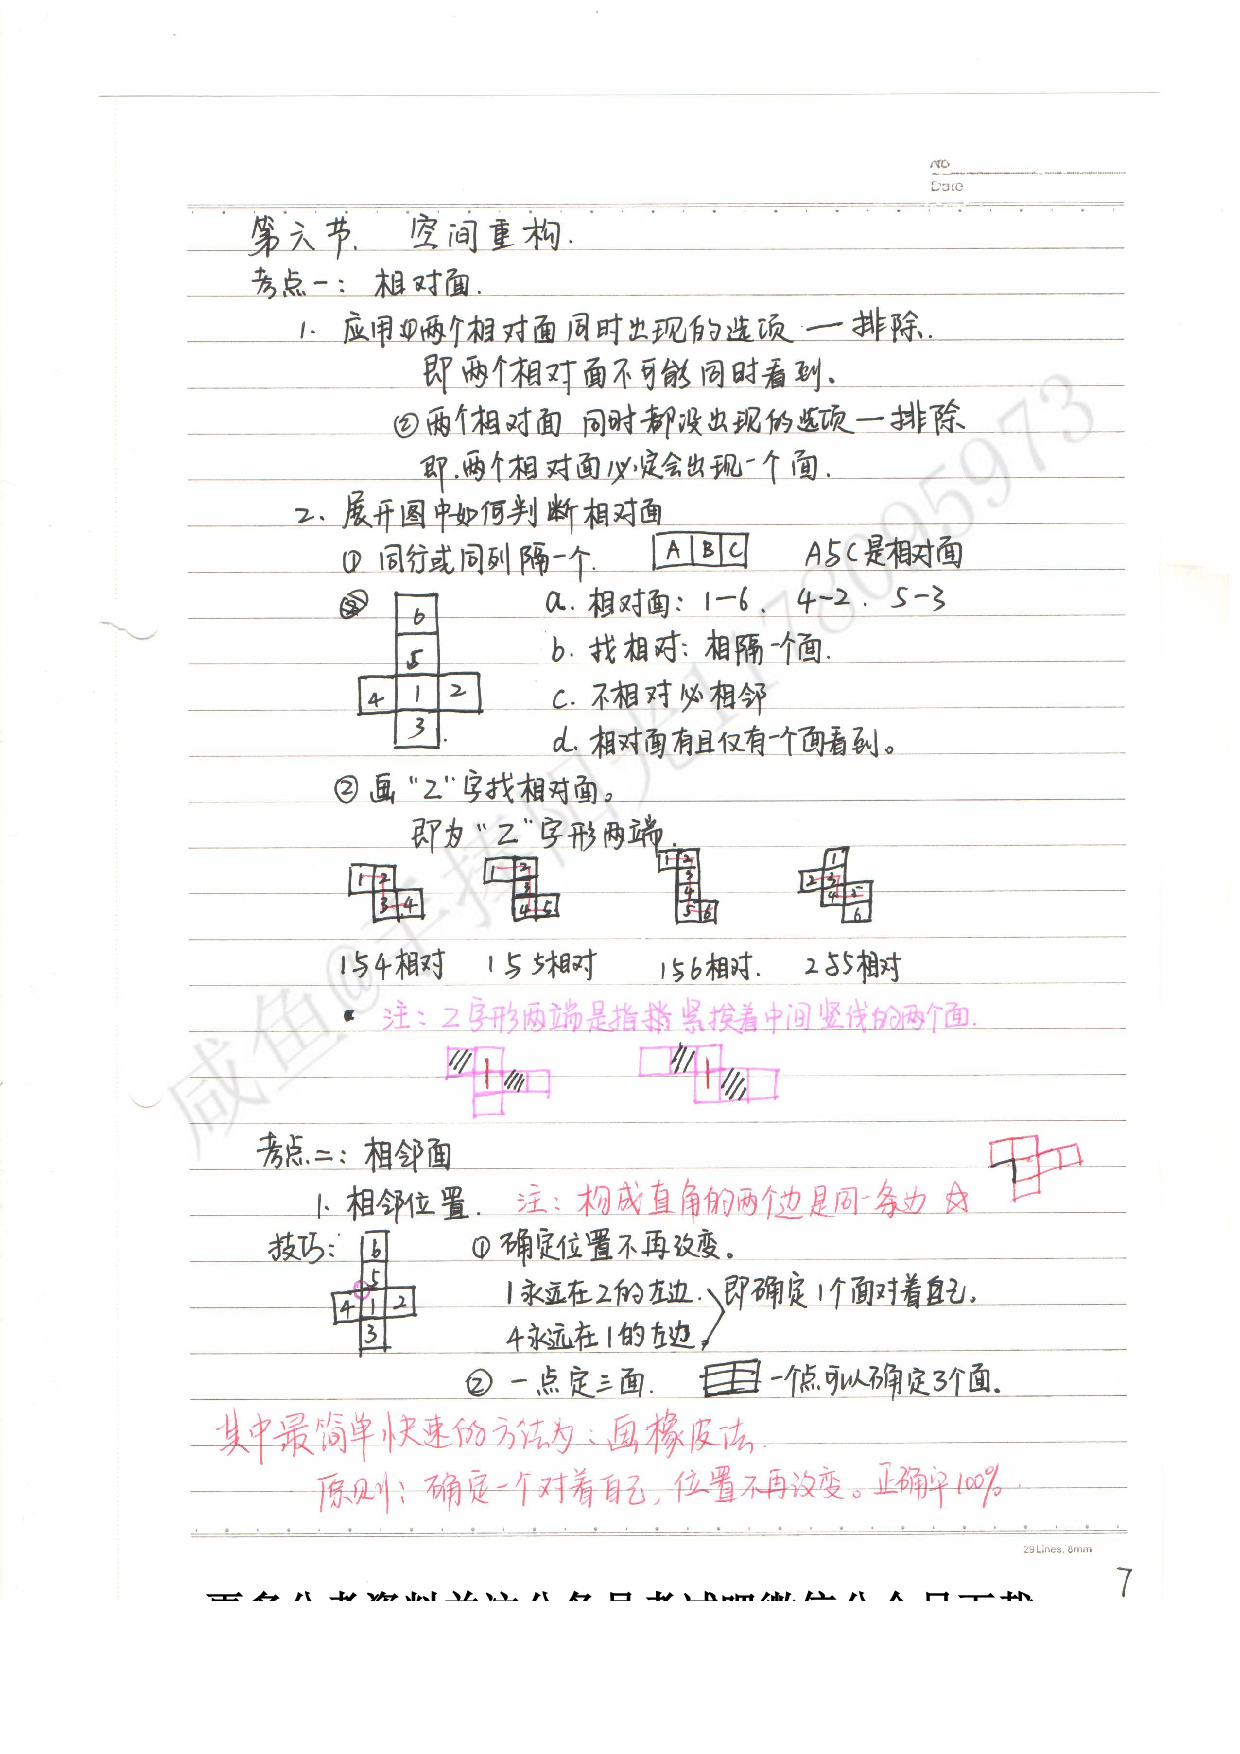 NO
Date
第六节. 空间重构.
考点一: 相对面.
1. 应用①两个相对面同时出现的选项一排除.
即两个相对面不可能同时看到.
②两个相对面 同时都没出现的选项一排除
即.两个相对面必定会出现一个面.
2、展开图中如何判断相对面
① 同行或同列隔一个. A B C A与C是相对面
6 a. 相对面: 1-6. 4-2. 5-3
5 b. 找相对: 相隔一个面.
4 1 2 c. 不相对必相邻
3 d. 相对面有且仅有一个面看到。
② 画“Z”字找相对面。
即为“Z”字形两端.
1 2 3 4
1 2 3 4 5
1 2 3 4 5 6
1 2 3 4 5 6
1与4相对 1与5相对 1与6相对. 2与5相对
注: Z字形两端是指 紧挨着中间竖线的两个面.
考点二: 相邻面
1. 相邻位置. 注: 构成直角的两个边是同一条边 ☆
技巧: 6 ① 确定位置不再改变。
5
4 1 2 1永远在2的左边. 即确定1个面对着自己.
3 4永远在1的左边.
② 一点定三面. 一个点可以确定3个面.
其中最简单快速的方法为: 画橡皮法.
原则: 确定一个对着自己, 位置不再改变。正确率100%.
29Lines, 8mm
7
咸鱼@手捧阳光1178095973